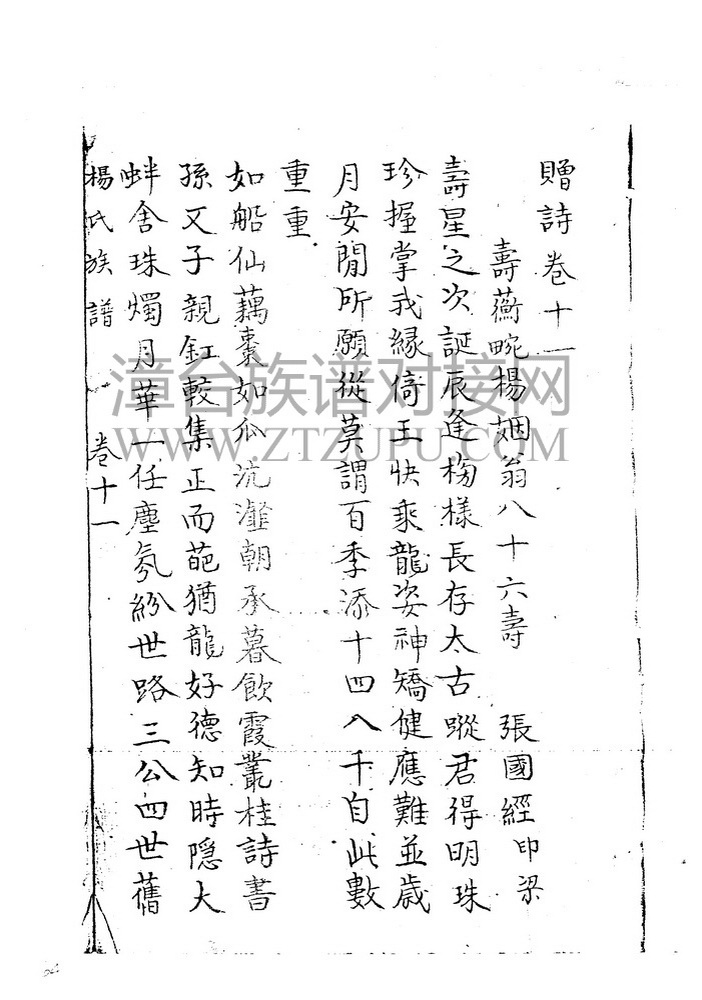 贈詩卷十一
壽薌畹楊姻翁八十六壽 張國經印梁
壽星之次誕辰逢 樣長存太古蹤君得明珠
珍握掌我緣倚玉快乘龍姿神矯健應難並歲
月安閒所願從莫謂百季添十四八千自此數
重重
如船仙藕棗如瓜沆瀣朝承暮飲霞叢桂詩書
孫又子親釭 集正而葩猶龍好德知時隱大
蚌含珠燭月華一任塵氛紛世路三公四世舊
楊氏族譜 卷十一
漳台族谱对接网
WWW.ZTZUPU.COM